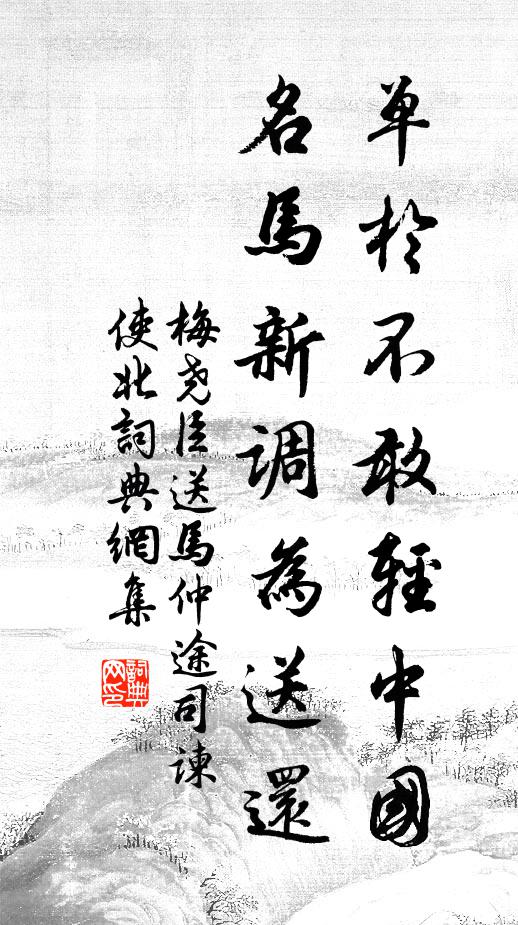 单於不敢輕中國
名馬新调為送還
梅尧臣送馬仲途司谏
使北詞典網集
詞典
网印